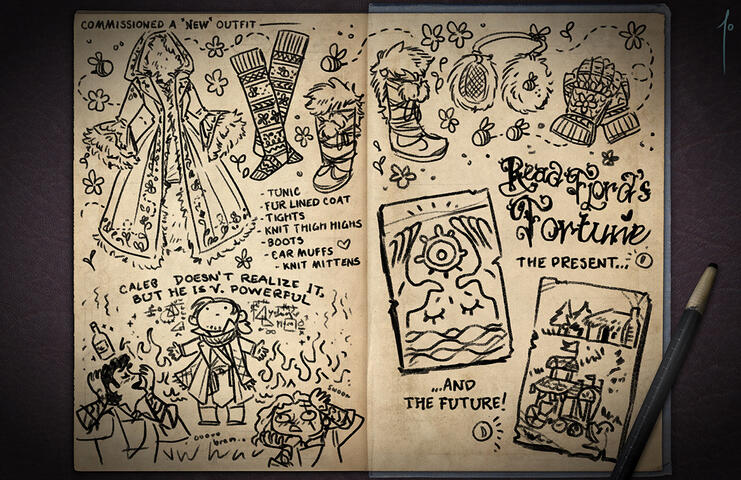 COMMISSIONED A "NEW" OUTFIT
- TUNIC
- FUR LINED COAT
- TIGHTS
- KNIT THIGH HIGHS
- BOOTS
- EAR MUFFS
- KNIT MITTENS
CALEB DOESN'T REALIZE IT,
BUT HE IS V. POWERFUL
SWOON
Read Fjord's
Fortune
THE PRESENT...
...AND
THE FUTURE!